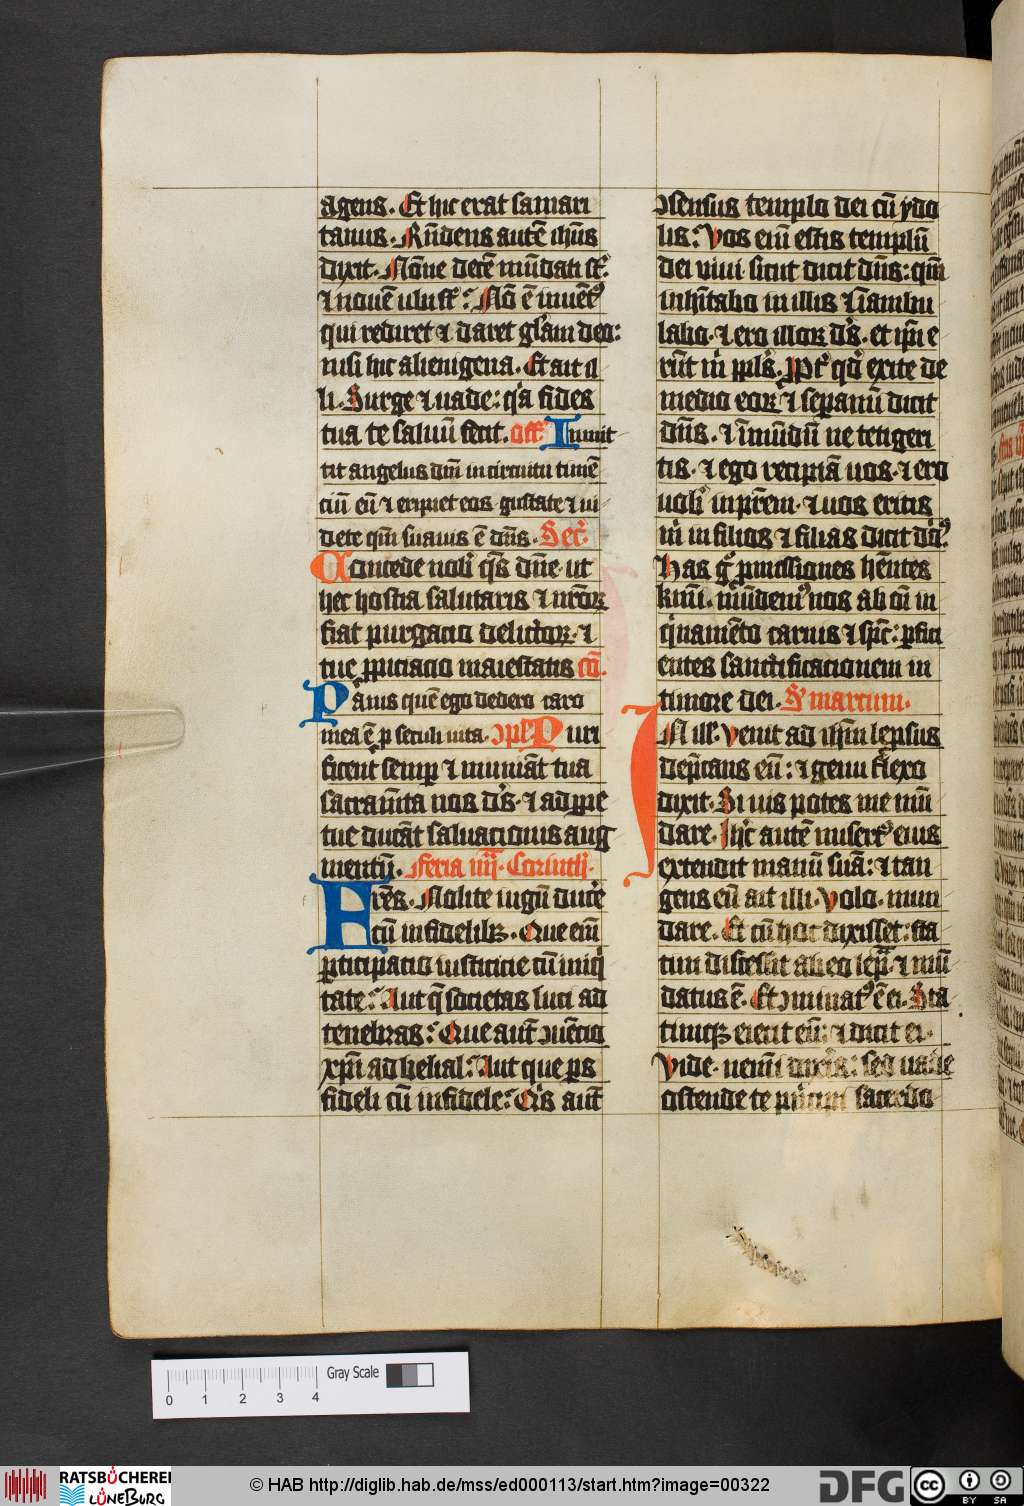 agens. Et hic erat samari
tanus. Rñdens autē ihūs
dixit. Nōne decē mūdati st̄.
⁊ novē ubi st̄? Nō ē invēt⁹
qui rediret ⁊ daret glām deo:
nisi hic alienigena. Et ait il
li. Surge ⁊ uade: qͥa fides
tua te saluū fecit. off̄ Inmit
tit angelus dn̄i in circuitu timē
ciū eū ⁊ eripiet eos gustate ⁊ ui
dete qm̄ suauis ē dn̄s. Secr̄.
Concede nobͥ qs̄ dn̄e. ut
hec hostia salutaris ⁊ nr̄oꝝ
fiat purgacio delictoꝝ. ⁊
tue ꝓpiciacio maiestatis cō.
Panis quē ego dedero caro
mea ē p seculi uita. ↄpl̄ Puri
ficent semꝑ ⁊ muniāt tua
sacram̄ta nos ds̄. ⁊ ad ꝑpe
tue ducāt saluacionis aug
mentū. Feria iiii. Corinth.
Frēs. Nolite iugū ducͤe
cū infidelibꝫ. Que eni̅
ꝑticipatio iusticie cū iniqͥ
tate? Aut q̄ societas luci ad
tenebras? Que aut̄ ↄuēcio
xp̄i ad belial? Aut que ps̄
fideli cū infidele? Qͥs aut̄
ↄsensus templo dei cū ydo
lis? Vos eni̅ estis templū
dei viui sicut dicit dn̄s: qm̄
inhītabo in illis ⁊ īambu
labo. ⁊ ero illoꝝ ds̄. et ip̄i e
rūt m̄ ppl̄s. Ppt̄ qd̄ exite de
medio eoꝝ ⁊ separamī dicit
dn̄s. ⁊ īmūdū ne tetigeri
tis. ⁊ ego recipiā uos. ⁊ ero
uobͥ in prēm. ⁊ uos eritis
m̄ in filios ⁊ filias dicit
Has gͦ ꝓmissiones hn̄tes
kmī. mūdem⁹ nos ab oī in
qͥnamēto carnis ⁊ spc̄: ꝑfici
entes sanctificacionem in
timore dei. Sͫ marcum.
IN ill̄. Venit ad ihm̄ lepsus
dep̄cans eū: ⁊ genu flexo
dixit. Si uis potes me mū
dare. Ihc̄ autē misert⁹ eius
extendit manū suā: ⁊ tan
gens eū ait illi. Volo. mun
dare. Et cū hoc dixisset: sta
tim discessit ab eo lepra. ⁊ mū
datus ē. Et ↄminat⁹ ē ei. Sta
timqꝫ eiecit eū: ⁊ dicit ei.
Vide. nemī dixeris: sed uade
ostende te pͥncipi sacerdo
Gray Scale
0 1 2 3 4
RATSBÜCHEREI
LÜNEBURG
© HAB http://diglib.hab.de/mss/ed000113/start.htm?image=00322
DFG
cc BY SA